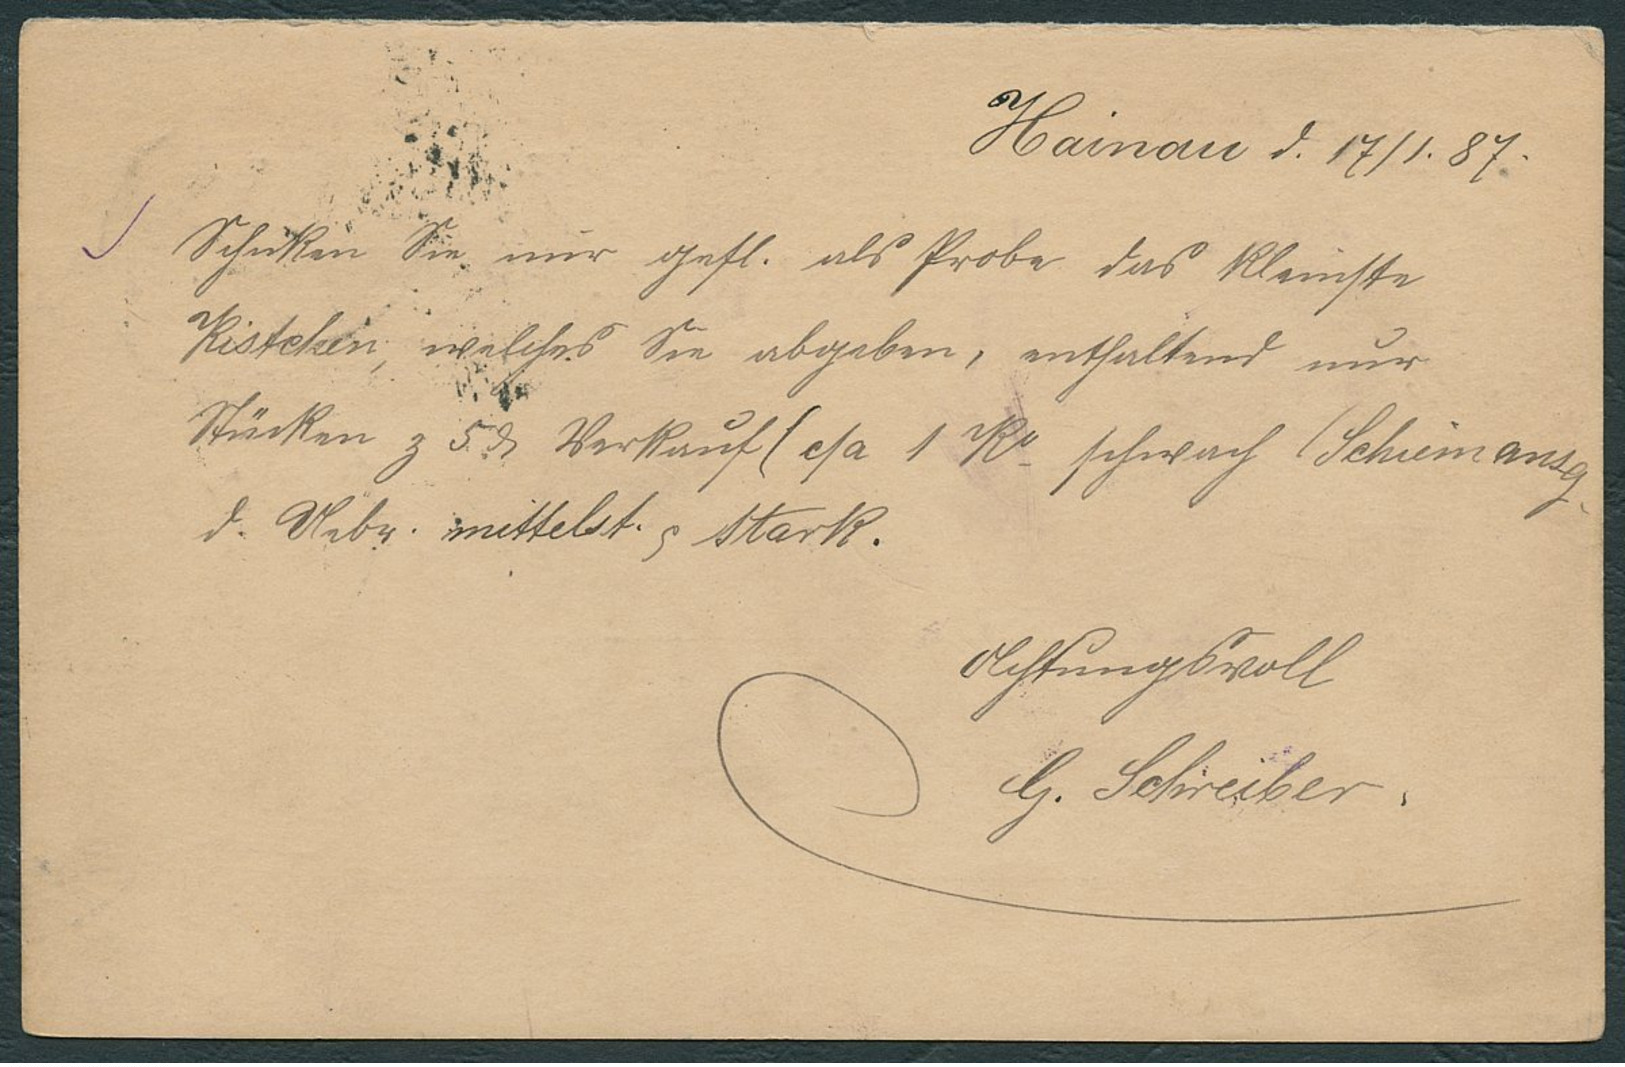 Hainau d. 17/1. 87.
Schicken Sie mir gefl. als Probe das kleinste
Kistchen, welches Sie abgeben, enthaltend nur
Stücken z 5 ₰ Verkauf (c/a 1 Ko schwach
d. Uebr. mittelst. & stark.
Achtungsvoll
G. Schreiber.